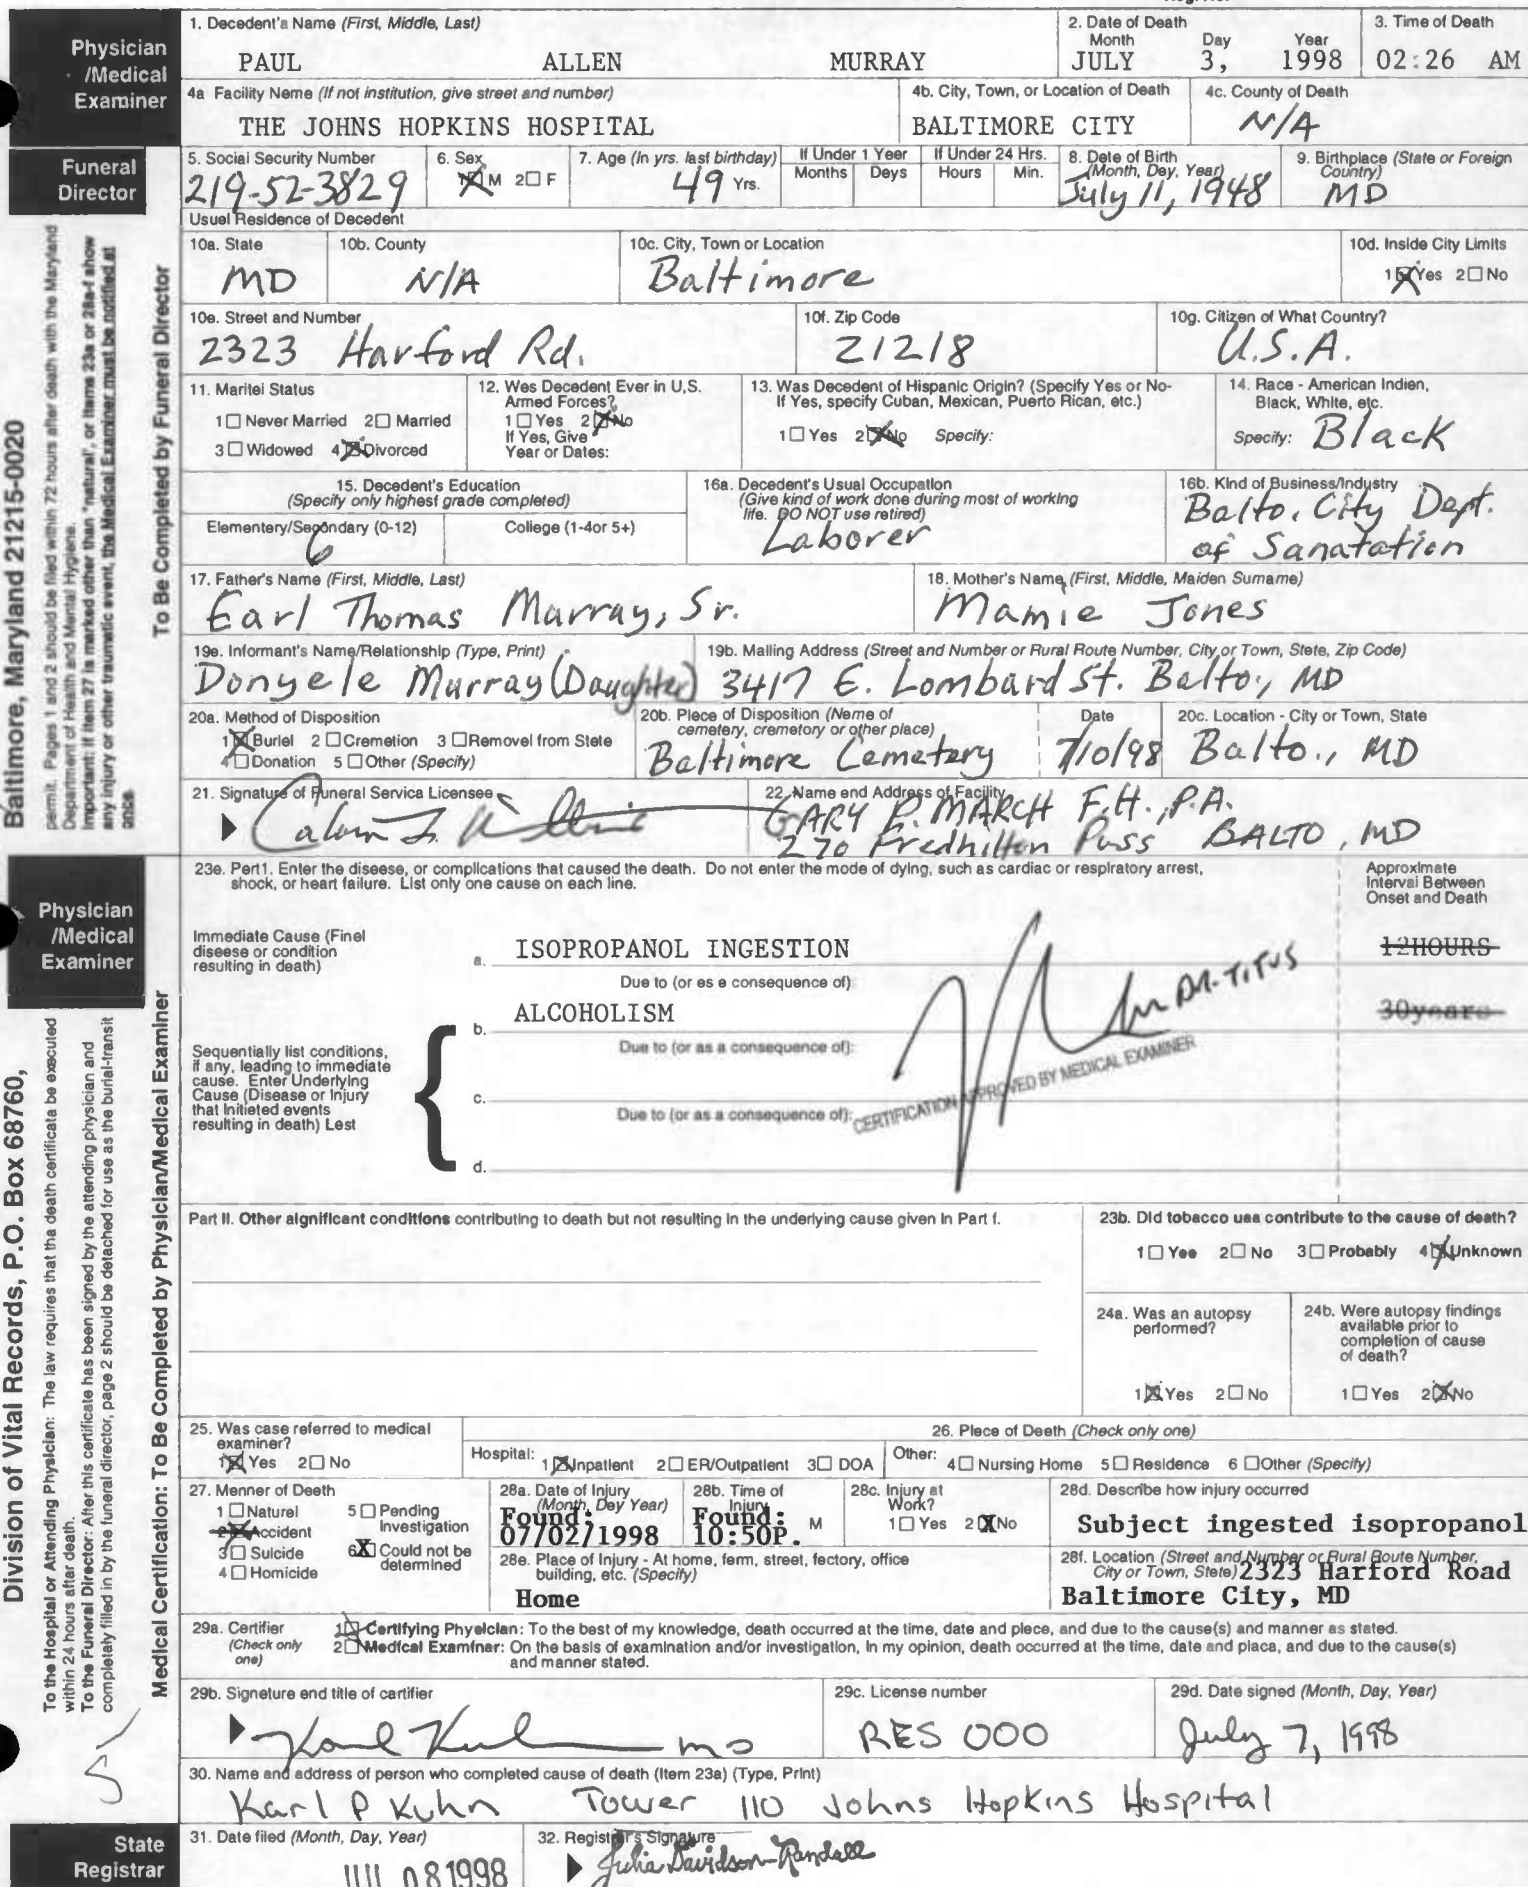 Physician
/Medical
Examiner
1. Decedent's Name (First, Middle, Last)
PAUL ALLEN MURRAY
2. Date of Death
Month Day Year
JULY 3, 1998
3. Time of Death
02:26 AM
4a Facility Name (If not institution, give street and number)
THE JOHNS HOPKINS HOSPITAL
4b. City, Town, or Location of Death
BALTIMORE CITY
4c. County of Death
N/A
Funeral
Director
5. Social Security Number
219-52-3829
6. Sex
1☒M 2☐ F
7. Age (In yrs. last birthday)
49 Yrs.
If Under 1 Year
Months Days
If Under 24 Hrs.
Hours Min.
8. Date of Birth
(Month, Day, Year)
July 11, 1948
9. Birthplace (State or Foreign
Country)
MD
Usual Residence of Decedent
10a. State
MD
10b. County
N/A
10c. City, Town or Location
Baltimore
10d. Inside City Limits
1☒Yes 2☐ No
10e. Street and Number
2323 Harford Rd.
10f. Zip Code
21218
10g. Citizen of What Country?
U.S.A.
11. Marital Status
1☐ Never Married 2☐ Married
3☐ Widowed 4☒Divorced
12. Was Decedent Ever in U.S.
Armed Forces?
1☐ Yes 2☒No
If Yes, Give
Year or Dates:
13. Was Decedent of Hispanic Origin? (Specify Yes or No-
If Yes, specify Cuban, Mexican, Puerto Rican, etc.)
1☐ Yes 2☒No Specify:
14. Race - American Indian,
Black, White, etc.
Specify: Black
15. Decedent's Education
(Specify only highest grade completed)
Elementary/Secondary (0-12) College (1-4or 5+)
6
16a. Decedent's Usual Occupation
(Give kind of work done during most of working
life. DO NOT use retired)
Laborer
16b. Kind of Business/Industry
Balto. City Dept.
of Sanatation
17. Father's Name (First, Middle, Last)
Earl Thomas Murray, Sr.
18. Mother's Name (First, Middle, Maiden Surname)
Mamie Jones
19a. Informant's Name/Relationship (Type, Print)
Donyele Murray (Daughter)
19b. Mailing Address (Street and Number or Rural Route Number, City or Town, State, Zip Code)
3417 E. Lombard St. Balto., MD
20a. Method of Disposition
1☒Burial 2 ☐Cremation 3 ☐Removal from State
4☐Donation 5☐Other (Specify)
20b. Place of Disposition (Name of
cemetery, crematory or other place)
Baltimore Cemetery
Date
7/10/98
20c. Location - City or Town, State
Balto., MD
21. Signature of Funeral Service Licensee
22. Name and Address of Facility
GARY P. MARCH F.H., P.A.
270 Fredhilton Pass BALTO, MD
Baltimore, Maryland 21215-0020
permit. Pages 1 and 2 should be filed within 72 hours after death with the Maryland
Department of Health and Mental Hygiene.
Important: If item 27 is marked other than "natural", or items 23a or 28a-f show
any injury or other traumatic event, the Medical Examiner must be notified at
once.
To Be Completed by Funeral Director
Physician
/Medical
Examiner
23a. Part1. Enter the disease, or complications that caused the death. Do not enter the mode of dying, such as cardiac or respiratory arrest,
shock, or heart failure. List only one cause on each line.
Approximate
Interval Between
Onset and Death
Immediate Cause (Final
disease or condition
resulting in death)
a. ISOPROPANOL INGESTION
12HOURS
Due to (or as a consequence of)
b. ALCOHOLISM
30years
Due to (or as a consequence of):
Sequentially list conditions,
if any, leading to immediate
cause. Enter Underlying
Cause (Disease or Injury
that initiated events
resulting in death) Last
c.
Due to (or as a consequence of):
d.
DR. TITUS
CERTIFICATION APPROVED BY MEDICAL EXAMINER
Part II. Other significant conditions contributing to death but not resulting in the underlying cause given in Part I.
23b. Did tobacco use contribute to the cause of death?
1☐ Yes 2☐ No 3☐ Probably 4☒Unknown
24a. Was an autopsy
performed?
1☒Yes 2☐ No
24b. Were autopsy findings
available prior to
completion of cause
of death?
1☐ Yes 2☒No
25. Was case referred to medical
examiner?
1☒ Yes 2☐ No
26. Place of Death (Check only one)
Hospital: 1☒Inpatient 2☐ ER/Outpatient 3☐ DOA
Other: 4☐ Nursing Home 5☐ Residence 6 ☐Other (Specify)
27. Manner of Death
1☐Natural 5☐ Pending
Investigation
2☒Accident
3☐ Suicide 6☒ Could not be
determined
4☐ Homicide
28a. Date of Injury
(Month, Day Year)
Found:
07/02/1998
28b. Time of
Injury
Found:
10:50P. M
28c. Injury at
Work?
1☐ Yes 2☒No
28d. Describe how injury occurred
Subject ingested isopropanol
28e. Place of Injury - At home, farm, street, factory, office
building, etc. (Specify)
Home
28f. Location (Street and Number or Rural Route Number,
City or Town, State) 2323 Harford Road
Baltimore City, MD
29a. Certifier
(Check only
one)
1☒ Certifying Physician: To the best of my knowledge, death occurred at the time, date and place, and due to the cause(s) and manner as stated.
2☐ Medical Examiner: On the basis of examination and/or investigation, in my opinion, death occurred at the time, date and place, and due to the cause(s)
and manner stated.
29b. Signature and title of certifier
Karl Kuhn MD
29c. License number
RES 000
29d. Date signed (Month, Day, Year)
July 7, 1998
30. Name and address of person who completed cause of death (Item 23a) (Type, Print)
Karl P Kuhn Tower 110 Johns Hopkins Hospital
Division of Vital Records, P.O. Box 68760,
To the Hospital or Attending Physician: The law requires that the death certificate be executed
within 24 hours after death.
To the Funeral Director: After this certificate has been signed by the attending physician and
completely filled in by the funeral director, page 2 should be detached for use as the burial-transit
Medical Certification: To Be Completed by Physician/Medical Examiner
5
State
Registrar
31. Date filed (Month, Day, Year)
JUL 08 1998
32. Registrar's Signature
Julia Davidson-Randall